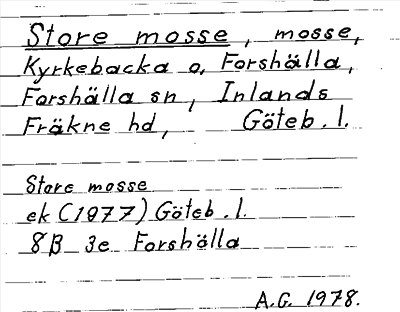 Store mosse, mosse,
Kyrkebacka o, Forshälla,
Forshälla sn, Inlands
Fräkne hd, Göteb. l.
Store mosse
ek (1977) Göteb. l.
8B 3e Forshälla
A.G. 1978.